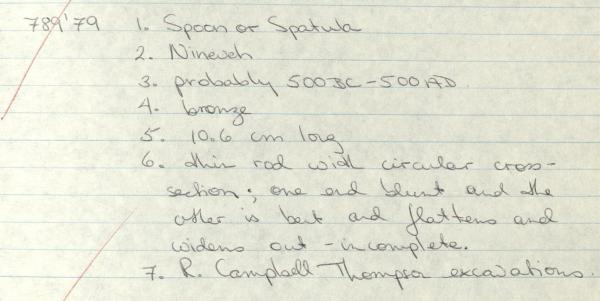 789'79 1. Spoon or Spatula
2. Nineveh
3. probably 500BC-500AD.
4. bronze
5. 10.6 cm long
6. thin rod with circular cross-
section; one end blunt and the
other is bent and flattens and
widens out - incomplete.
7. R. Campbell Thompson excavations.